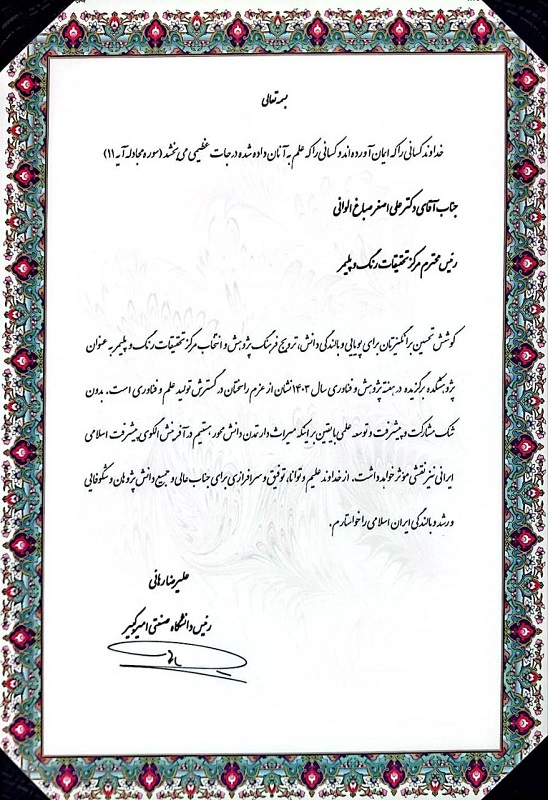 بسمه تعالی
خداوند کسانی را که ایمان آورده اند و کسانی را که علم به آنان داده شده درجات عظیمی می بخشد (سوره مجادله آیه ۱۱)
جناب آقای دکتر علی اصغر صباغ الوانی
رئیس محترم مرکز تحقیقات رنگ و پلیمر
کوشش تحسین برانگیزتان برای پویایی و بالندگی دانش، ترویج فرهنگ پژوهش و انتخاب مرکز تحقیقات رنگ و پلیمر به عنوان
پژوهشکده برگزیده در هفته پژوهش و فناوری سال ۱۴۰۳ نشان از عزم راسختان در گسترش تولید علم و فناوری است. بدون
شک مشارکت در پیشرفت و توسعه علمی با یقین بر اینکه میراث دار تمدن دانش محور هستیم در آفرینش الگوی پیشرفت اسلامی
ایرانی نیز نقشی مؤثر خواهد داشت. از خداوند علیم و توانا، توفیق و سرافرازی برای جناب عالی و جمیع دانش پژوهان و شکوفایی
و رشد و بالندگی ایران اسلامی را خواستارم.
علیرضا رهائی
رئیس دانشگاه صنعتی امیرکبیر